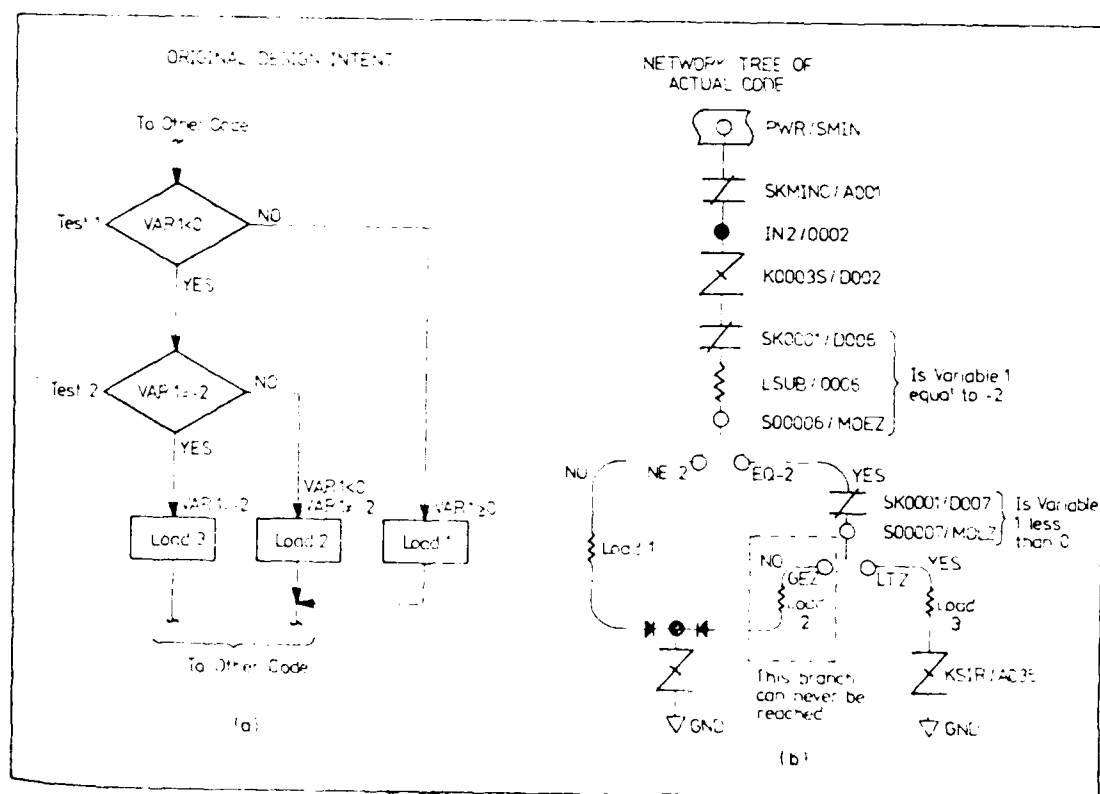 ORIGINAL DESIGN INTENT
To Other Code
Test 1
VAR 1<0
NO
YES
Test 2
VAR 1=-2
NO
YES
VAR 1=-2
VAR 1<0
VAR 1≠-2
VAR 1≥0
Load 3
Load 2
Load 1
To Other Code
(a)
NETWORK TREE OF
ACTUAL CODE
PWR/SMIN
SKMINC/A001
IN2/0002
K0003S/D002
SK0001/D006
LSUB/0006
S00006/MOEZ
Is Variable 1
equal to -2
NO
NE-2
EQ-2
YES
SK0001/D007
S00007/MOEZ
Is Variable
1 less
than 0
Load 1
NO
GEZ
LTZ
YES
Load
2
Load
3
This branch
can never be
reached
KSIR/A035
GND
GND
(b)